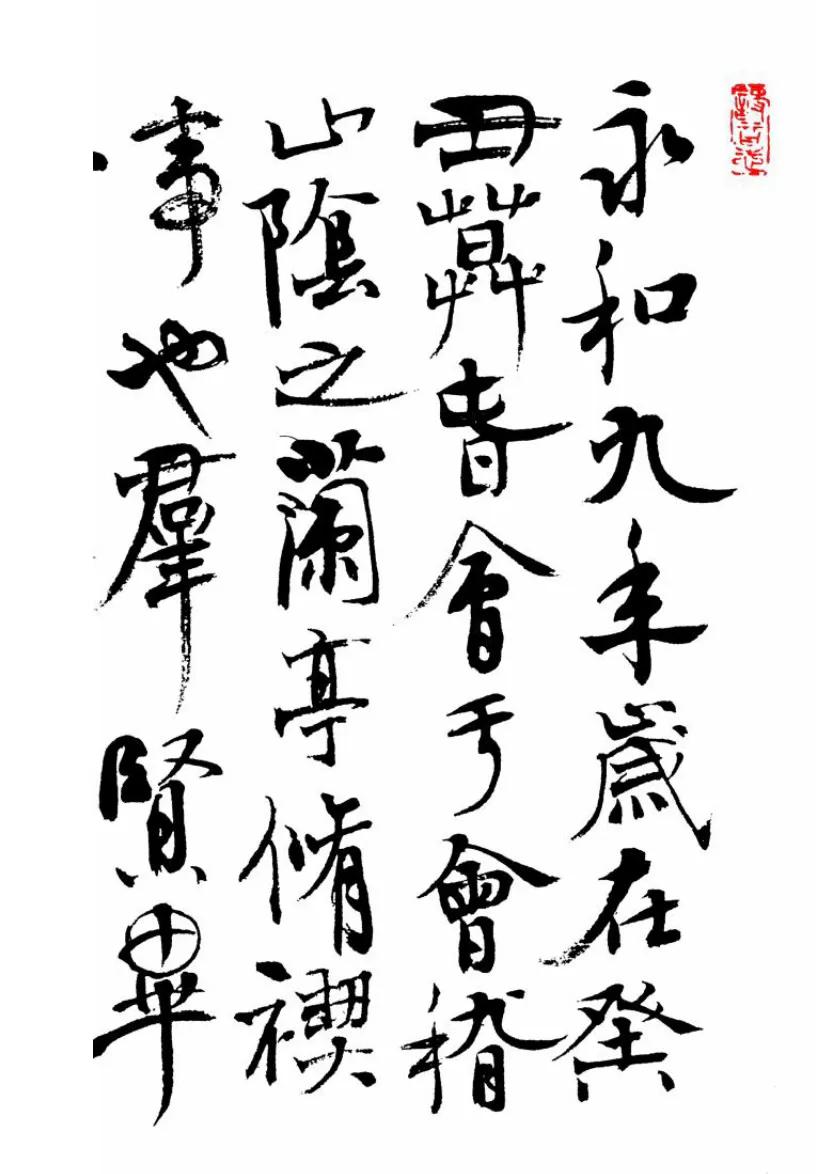 永和九年歲在癸
丑莫春會于會稽
山陰之蘭亭脩禊
事也羣賢畢